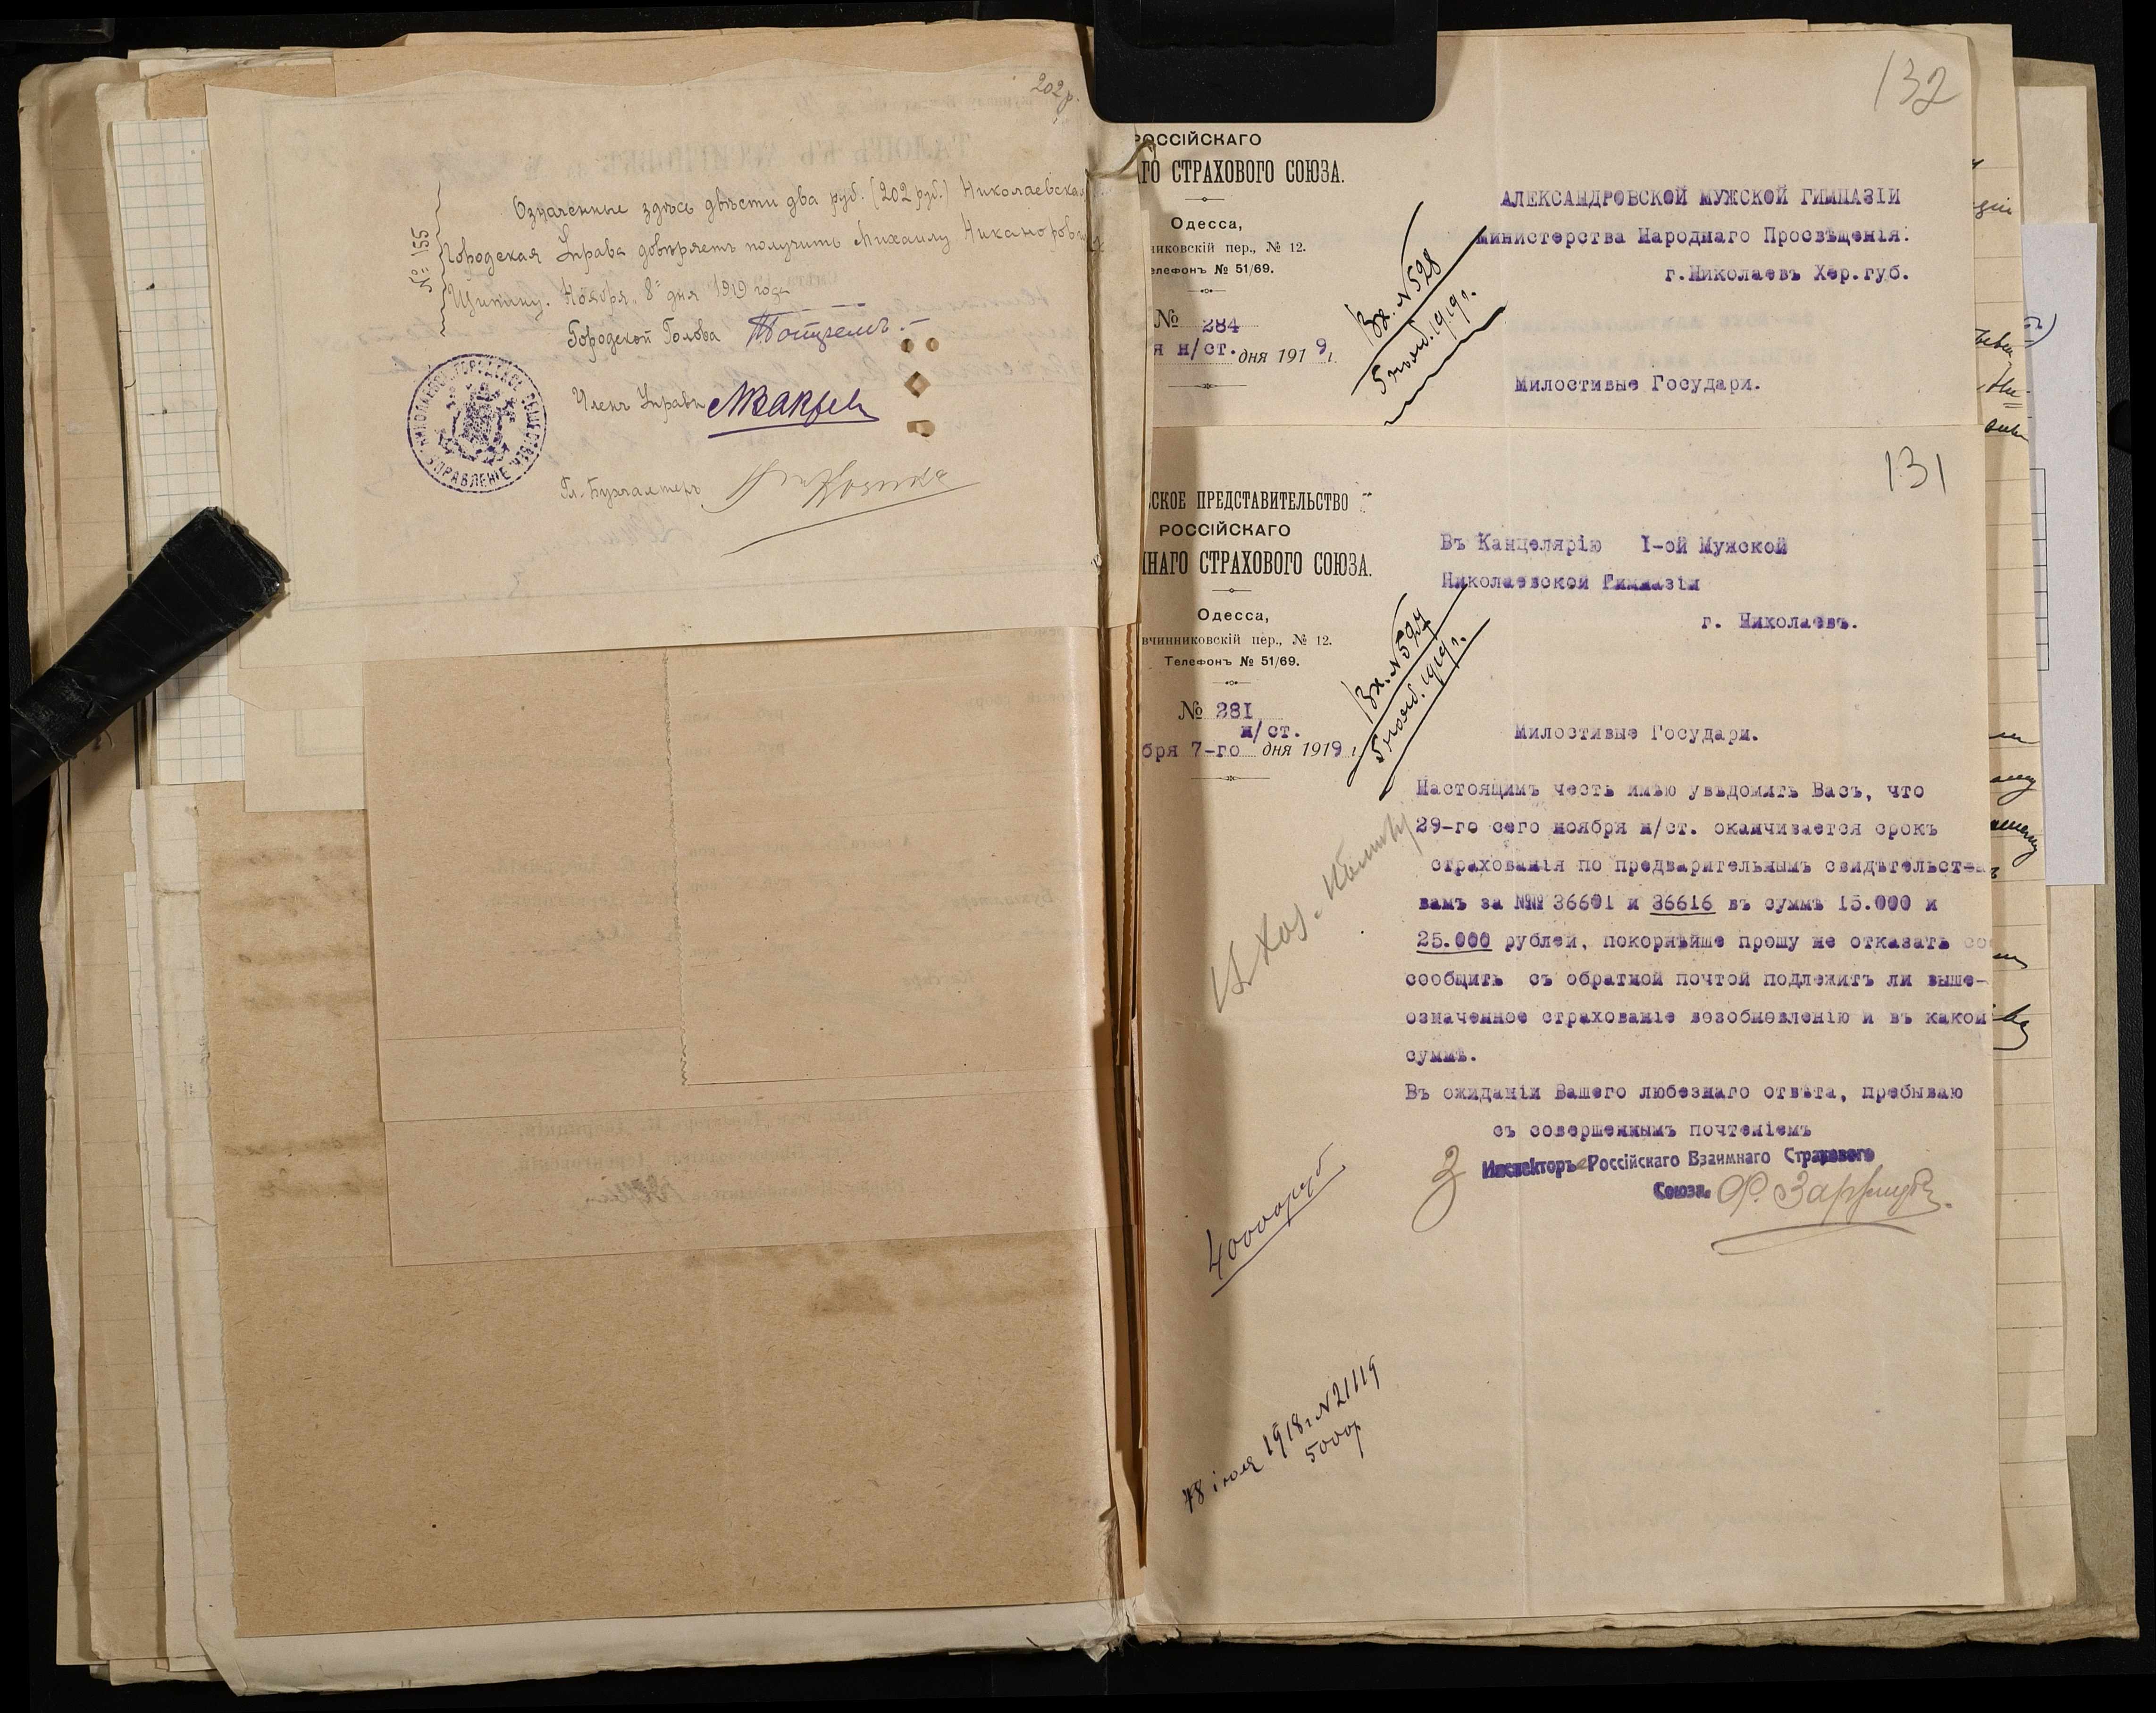 202 р.
№ 155
Означенные здѣсь двѣсти два руб. (202 руб.) Николаевская
Городская Управа довѣряетъ получить Михаилу Никаноровичу
Щипину. Ноября „8" дня 1919 года
Городской Голова
Членъ Управы
Гл. Бухгалтеръ
НИКОЛАЕВ. ГОРОДСКОЕ ОБЩЕСТВ. УПРАВЛЕНІЕ
132
РОССІЙСКАГО
ГО СТРАХОВОГО СОЮЗА.
Одесса,
никовскій пер., № 12.
елефонъ № 51/69.
№ 284
я н/ст. дня 1919 г.
Вх. № 598
5 нояб. 1919 г.
АЛЕКСАНДРОВСКОЙ МУЖСКОЙ ГИМНАЗІИ
Министерства Народнаго Просвѣщенія.
г.Николаевъ Хер.губ.
Милостивые Государи.
131
СКОЕ ПРЕДСТАВИТЕЛЬСТВО
РОССІЙСКАГО
НАГО СТРАХОВОГО СОЮЗА.
Одесса,
вчинниковскій пер., № 12.
Телефонъ № 51/69.
№ 281
н/ст.
бря 7-го дня 1919 г.
Вх. № 597
5 нояб. 1919 г.
Въ Канцелярію I-ой Мужской
Николаевской Гимназіи
г. Николаевъ.
Милостивые Государи.
Настоящимъ честь имѣю увѣдомить Васъ, что
29-го сего ноября н/ст. оканчивается срокъ
страхованія по предварительнымъ свидѣтельст-
вамъ за №№ 36601 и 36616 въ суммѣ 15.000 и
25.000 рублей, покорнѣйше прошу не отказать со
сообщить съ обратной почтой подлежитъ ли выше-
означенное страхованіе возобновленію и въ какой
суммѣ.
Въ ожиданіи Вашего любезнаго отвѣта, пребываю
съ совершеннымъ почтеніемъ
Инспекторъ Россійскаго Взаимнаго Страхового
Союза.
40000 руб
іюля 1918 г. № 21119
5000 р